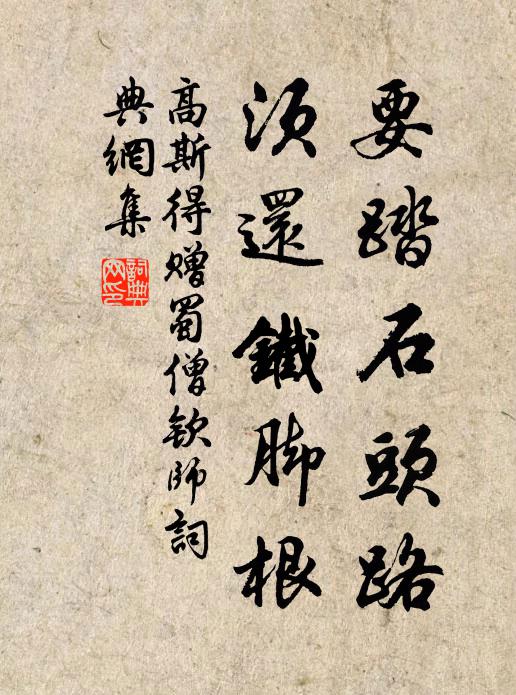 要踏石頭路
須還鐵脚根
高斯得贈蜀僧欽師詞
典網集
詞典網印